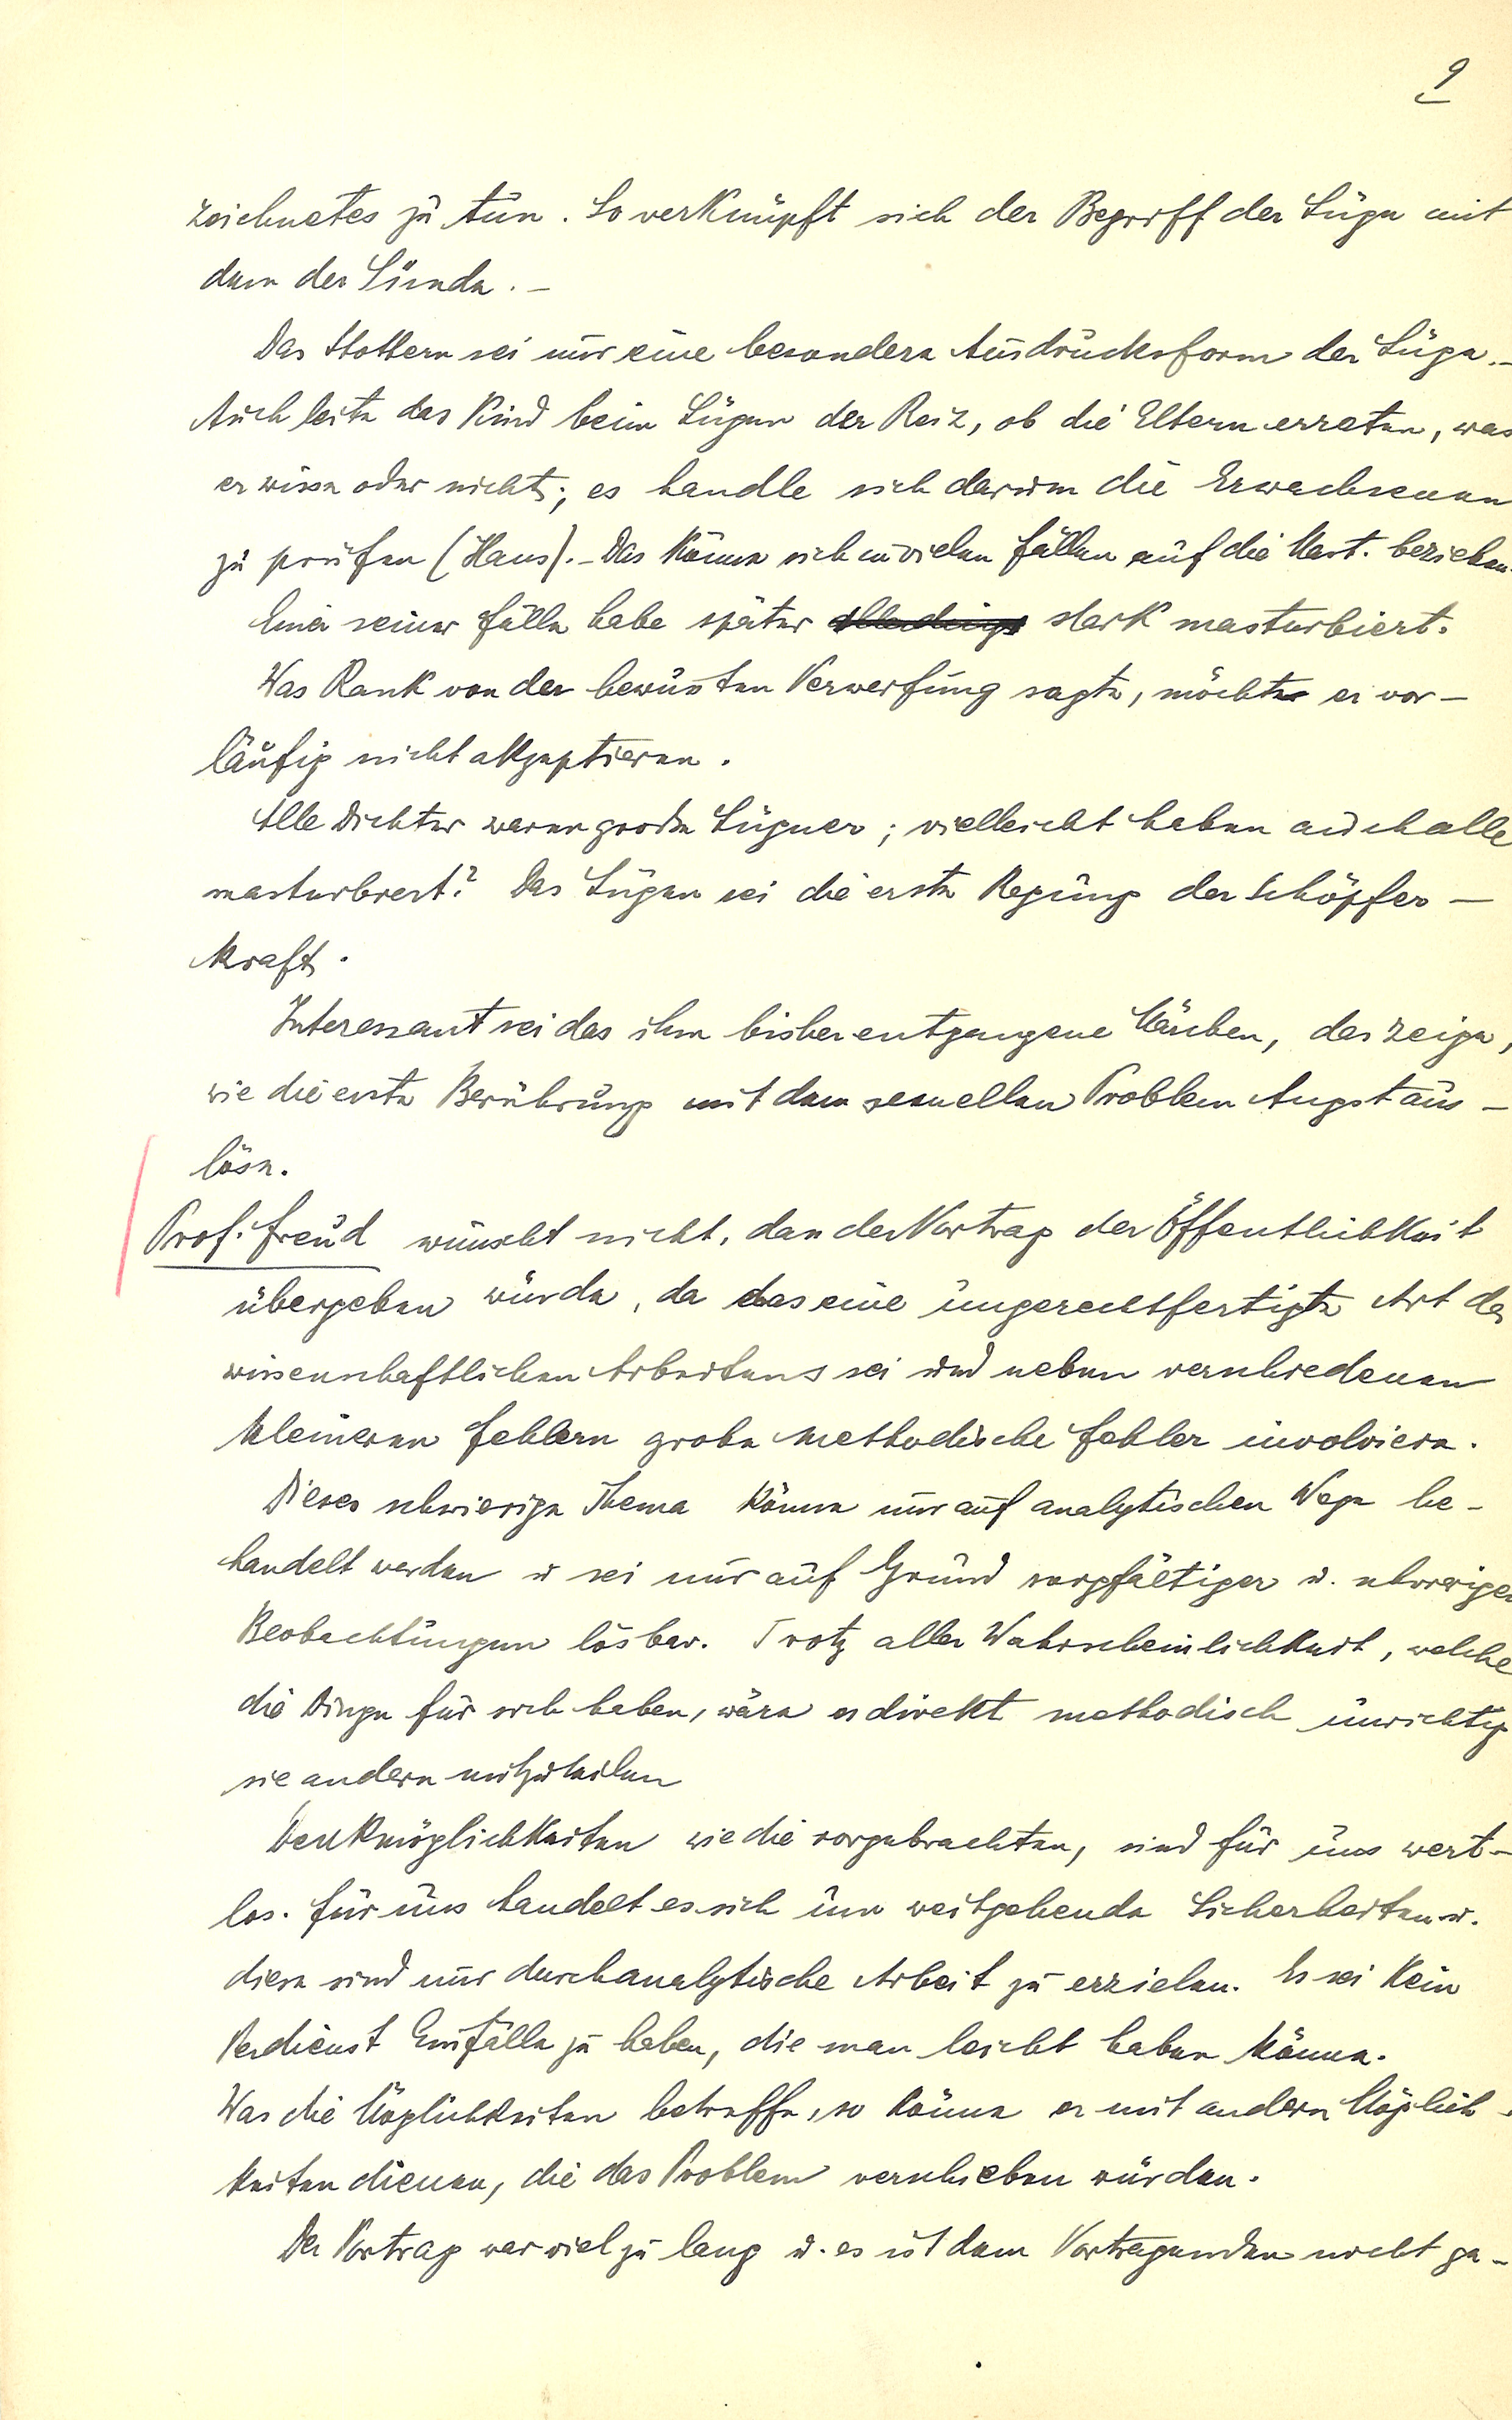 9
zeichnetes zu tun. So verknüpft sich der Begriff der Lüge mit
dem der Sünde. –
Das Stottern sei nur eine besondere Ausdrucksform der Lüge. –
Auch leite das Kind beim Lügen der Reiz, ob die Eltern erraten, was
er wisse oder nicht; es handle sich darum die Erwachsenen
zu prüfen (Hans). – Das könne sich in vielen Fällen auf die Mast. beziehen.
Einer seiner Fälle habe später allerdings stark masturbiert.
Was Rank von der bewußten Verwerfung sagte, möchte er vor–
läufig nicht akzeptieren.
Alle Dichter waren große Lügner; vielleicht haben auch alle
masturbiert? Das Lügen sei die erste Regung der Schöpfer–
kraft.
Interessant sei das ihm bisher entgangene Märchen, das zeige,
wie die erste Berührung mit dem sexuellen Problem Angst aus–
löse.
Prof. Freud wünscht nicht, daß der Vortrag der Öffentlichkeit
übergeben würde, da das eine ungerechtfertigte Art des
wissenschaftlichen Arbeitens sei und neben verschiedenen
kleineren Fehlern grobe methodische Fehler involviere.
Dieses schwierige Thema könne nur auf analytischen Wege be–
handelt werden u sei nur auf Grund sorgfältiger u. schwieriger
Beobachtungen lösbar. Trotz aller Wahrscheinlichkeit, welche
die Dinge für sich haben, wäre es direkt methodisch unrichtig
sie andern mitzuteilen
Denkmöglichkeiten wie die vorgebrachten, sind für uns wert–
los. Für uns handelt es sich um weitgehende Sicherheiten u.
diese sind nur durch analytische Arbeit zu erzielen. Es sei kein
Verdienst Einfälle zu haben, die man leicht haben könne.
Was die Möglichkeiten betreffe, so könne er mit andern Möglich–
keiten dienen, die das Problem verschieben würden.
Der Vortrag war viel zu lang u. es ist dem Vortragenden nicht ge–